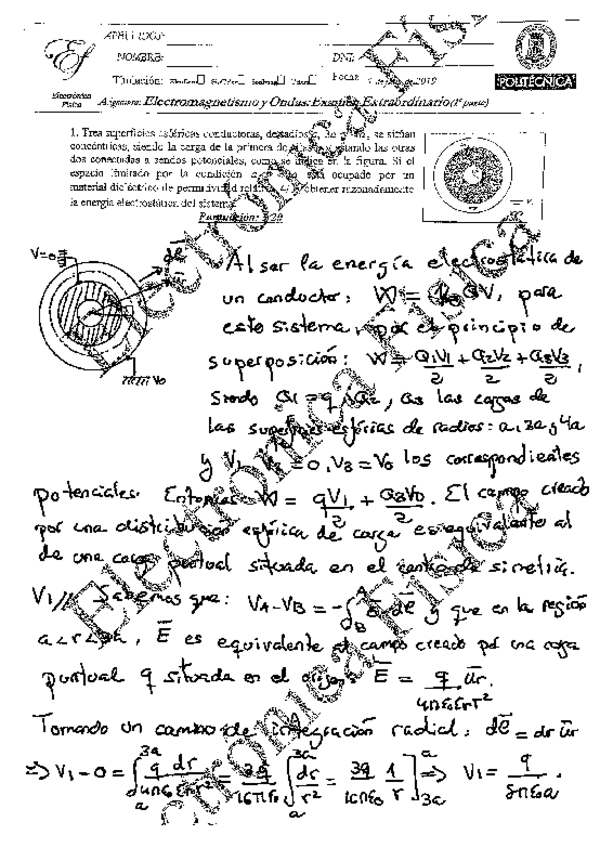 APELLIDOS:
NOMBRE: DNI:
Titulación: Fecha: de 2019
Electrónica Física POLITÉCNICA
Asignatura: Electromagnetismo y Ondas: Examen Extraordinario (1ª parte)
1. Tres superficies esféricas conductoras, de radios a, 3a y 4a, se sitúan
concéntricas, siendo la carga de la primera de ellas q y estando las otras
dos conectadas a sendos potenciales, como se indica en la figura. Si el
espacio limitado por la condición está ocupado por un
material dieléctrico de permitividad relativa obtener razonadamente
la energía electrostática del sistema.
Puntuación: /20
V=0 dl
V0
Al ser la energía electrostática de
un conductor: W = ½ QV, para
este sistema, por el principio de
superposición: W = Q1V1/2 + Q2V2/2 + Q3V3/2,
siendo Q1 = q, Q2, Q3 las cargas de
las superficies esféricas de radios: a, 3a y 4a
y V1, V2 = 0, V3 = V0 los correspondientes
potenciales. Entonces W = qV1/2 + Q3V0/2. El campo creado
por una distribución esférica de carga es equivalente al
de una carga puntual situada en el centro de simetría.
V1// Sabemos que: VA-VB = -∫ E dl y que en la región
a<r<3a, E es equivalente al campo creado por una carga
puntual q situada en el origen: E = q/4πε0εr r² ur.
Tomando un camino de integración radial: dl = dr ur
=> V1 - 0 = ∫ q dr/4πε0εr r² = 3q/16πε0 ∫ dr/r² = 3q/16πε0 1/r ] => V1 = q/8πε0a.
Electrónica Física
Electrónica Física
Electrónica Física